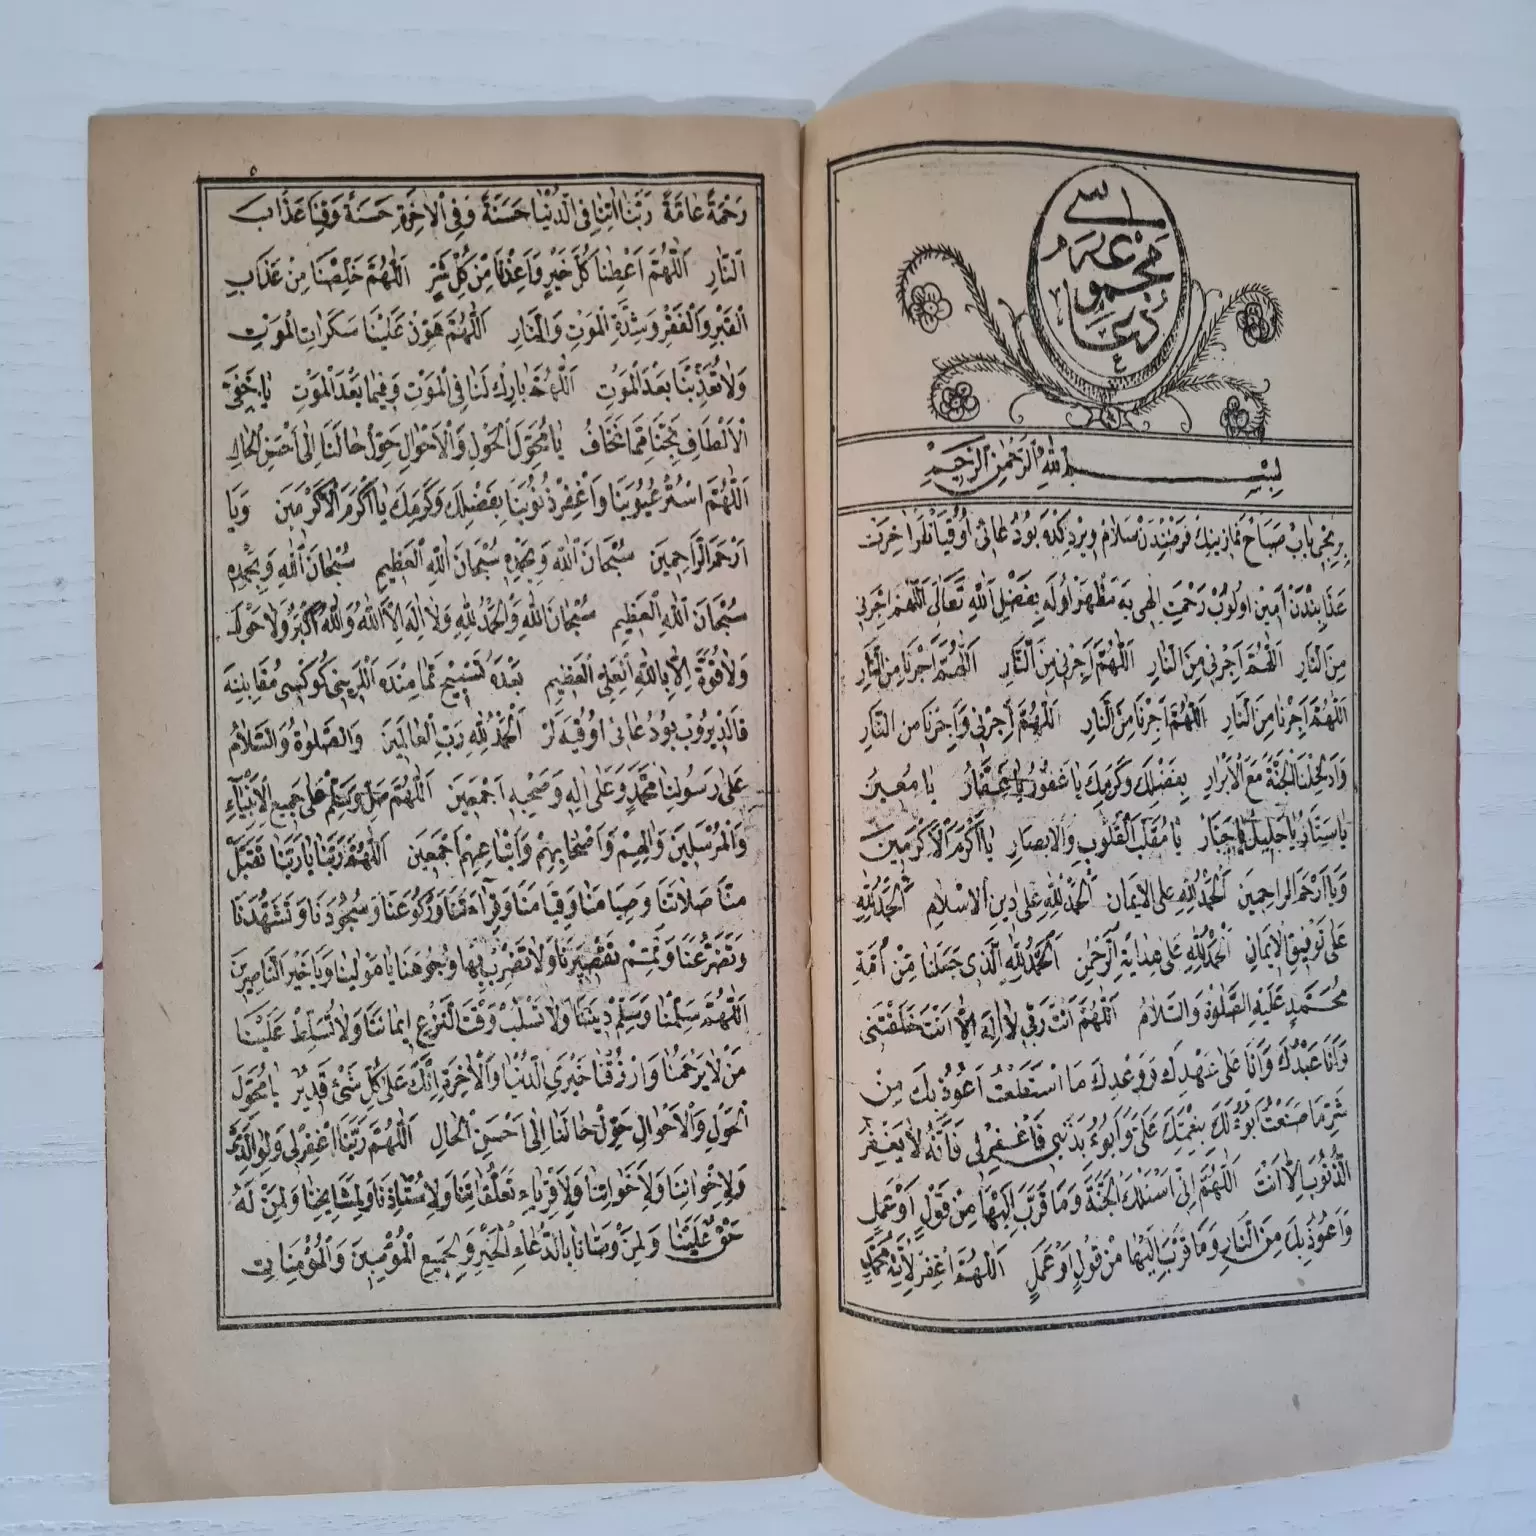 مجموعه
دعا
٤
بِسْمِ اللهِ الرَّحْمٰنِ الرَّحِيمِ
برنجى باب صباح نمازينك فرضندن سلام ويردكده بو دعائى اوقيانلر اخرت
عذابندن امين اولوب رحمت الهى يه مظهر اوله بِفَضْلِ اللهِ تَعَالٰى اَللّٰهُمَّ اَجِرْنِى
مِنَ النَّارِ اَللّٰهُمَّ اَجِرْنِى مِنَ النَّارِ اَللّٰهُمَّ اَجِرْنِى مِنَ النَّارِ اَللّٰهُمَّ اَجِرْنَا مِنَ النَّارِ
اَللّٰهُمَّ اَجِرْنَا مِنَ النَّارِ اَللّٰهُمَّ اَجِرْنَا مِنَ النَّارِ اَللّٰهُمَّ اَجِرْنِى وَاَجِرْنَا مِنَ النَّارِ
وَاَدْخِلْنَا الْجَنَّةَ مَعَ الْاَبْرَارِ بِفَضْلِكَ وَكَرَمِكَ يَا غَفُورُ يَا غَفَّارُ يَا مُعِينُ
يَا سَتَّارُ يَا جَلِيلُ يَا جَبَّارُ يَا مُقَلِّبَ الْقُلُوبِ وَالْاَبْصَارِ يَا اَكْرَمَ الْاَكْرَمِينَ
وَيَا اَرْحَمَ الرَّاحِمِينَ اَلْحَمْدُ لِلّٰهِ عَلَى الْاِيمَانِ اَلْحَمْدُ لِلّٰهِ عَلٰى دِينِ الْاِسْلَامِ اَلْحَمْدُ لِلّٰهِ
عَلٰى تَوْفِيقِ الْاِيمَانِ اَلْحَمْدُ لِلّٰهِ عَلٰى هِدَايَةِ الرَّحْمٰنِ اَلْحَمْدُ لِلّٰهِ الَّذِى جَعَلَنَا مِنْ اُمَّةِ
مُحَمَّدٍ عَلَيْهِ الصَّلٰوةُ وَالسَّلَامُ اَللّٰهُمَّ اَنْتَ رَبِّى لَا اِلٰهَ اِلَّا اَنْتَ خَلَقْتَنِى
وَاَنَا عَبْدُكَ وَاَنَا عَلٰى عَهْدِكَ وَوَعْدِكَ مَا اسْتَطَعْتُ اَعُوذُ بِكَ مِنْ
شَرِّ مَا صَنَعْتُ اَبُوءُ لَكَ بِنِعْمَتِكَ عَلَىَّ وَاَبُوءُ بِذَنْبِى فَاغْفِرْ لِى فَاِنَّهُ لَا يَغْفِرُ
الذُّنُوبَ اِلَّا اَنْتَ اَللّٰهُمَّ اِنِّى اَسْئَلُكَ الْجَنَّةَ وَمَا قَرَّبَ اِلَيْهَا مِنْ قَوْلٍ اَوْ عَمَلٍ
وَاَعُوذُ بِكَ مِنَ النَّارِ وَمَا قَرَّبَ اِلَيْهَا مِنْ قَوْلٍ اَوْ عَمَلٍ اَللّٰهُمَّ اغْفِرْ لِاُمَّةِ مُحَمَّدٍ
٥
رَحْمَةً عَامَّةً رَبَّنَا اٰتِنَا فِى الدُّنْيَا حَسَنَةً وَفِى الْاٰخِرَةِ حَسَنَةً وَقِنَا عَذَابَ
النَّارِ اَللّٰهُمَّ اَعْطِنَا كُلَّ خَيْرٍ وَاَعِذْنَا مِنْ كُلِّ شَرٍّ اَللّٰهُمَّ خَلِّصْنَا مِنْ عَذَابِ
الْقَبْرِ وَالْفَقْرِ وَشِدَّةِ الْمَوْتِ وَالنَّارِ اَللّٰهُمَّ هَوِّنْ عَلَيْنَا سَكَرَاتِ الْمَوْتِ
وَلَا تُعَذِّبْنَا بَعْدَ الْمَوْتِ اَللّٰهُمَّ بَارِكْ لَنَا فِى الْمَوْتِ وَفِيمَا بَعْدَ الْمَوْتِ يَا خَفِىَّ
الْاَلْطَافِ نَجِّنَا مِمَّا نَخَافُ يَا مُحَوِّلَ الْحَوْلِ وَالْاَحْوَالِ حَوِّلْ حَالَنَا اِلٰى اَحْسَنِ الْحَالِ
اَللّٰهُمَّ اسْتُرْ عُيُوبَنَا وَاغْفِرْ ذُنُوبَنَا بِفَضْلِكَ وَكَرَمِكَ يَا اَكْرَمَ الْاَكْرَمِينَ وَيَا
اَرْحَمَ الرَّاحِمِينَ سُبْحَانَ اللهِ وَبِحَمْدِهِ سُبْحَانَ اللهِ الْعَظِيمِ سُبْحَانَ اللهِ وَبِحَمْدِهِ
سُبْحَانَ اللهِ الْعَظِيمِ سُبْحَانَ اللهِ وَالْحَمْدُ لِلّٰهِ وَلَا اِلٰهَ اِلَّا اللهُ وَاللهُ اَكْبَرُ وَلَا حَوْلَ
وَلَا قُوَّةَ اِلَّا بِاللهِ الْعَلِىِّ الْعَظِيمِ بعده تسبيح تمامنده اللرينى كوكسى مقابلينه
قالديروب بو دعائى اوقيه لر اَلْحَمْدُ لِلّٰهِ رَبِّ الْعَالَمِينَ وَالصَّلٰوةُ وَالسَّلَامُ
عَلٰى رَسُولِنَا مُحَمَّدٍ وَعَلٰى اٰلِهِ وَصَحْبِهِ اَجْمَعِينَ اَللّٰهُمَّ صَلِّ وَسَلِّمْ عَلٰى جَمِيعِ الْاَنْبِيَاءِ
وَالْمُرْسَلِينَ وَاٰلِهِمْ وَاَصْحَابِهِمْ وَاَتْبَاعِهِمْ اَجْمَعِينَ اَللّٰهُمَّ رَبَّنَا يَا رَبَّنَا تَقَبَّلْ
مِنَّا صَلَاتَنَا وَصِيَامَنَا وَقِيَامَنَا وَقِرَاءَتَنَا وَرُكُوعَنَا وَسُجُودَنَا وَتَشَهُّدَنَا
وَتَضَرُّعَنَا وَتَمِّمْ تَقْصِيرَنَا وَلَا تَضْرِبْ بِهَا وُجُوهَنَا يَا مَوْلٰينَا وَيَا خَيْرَ النَّاصِرِينَ
اَللّٰهُمَّ سَلِّمْنَا وَسَلِّمْ دِينَنَا وَلَا تَسْلُبْ وَقْتَ النَّزْعِ اِيمَانَنَا وَلَا تُسَلِّطْ عَلَيْنَا
مَنْ لَا يَرْحَمُنَا وَارْزُقْنَا خَيْرَىِ الدُّنْيَا وَالْاٰخِرَةِ اِنَّكَ عَلٰى كُلِّ شَىْءٍ قَدِيرٌ يَا مُحَوِّلَ
الْحَوْلِ وَالْاَحْوَالِ حَوِّلْ حَالَنَا اِلٰى اَحْسَنِ الْحَالِ اَللّٰهُمَّ رَبَّنَا اغْفِرْ لِى وَلِوَالِدَىَّ
وَلِاِخْوَانِنَا وَلِاَخَوَاتِنَا وَلِاَقْرِبَاءِ تَعَلُّقَاتِنَا وَلِاُسْتَاذِنَا وَلِمَشَايِخِنَا وَلِمَنْ لَهُ
حَقٌّ عَلَيْنَا وَلِمَنْ وَصَّانَا بِالدُّعَاءِ الْخَيْرِ وَلِجَمِيعِ الْمُؤْمِنِينَ وَالْمُؤْمِنَاتِ